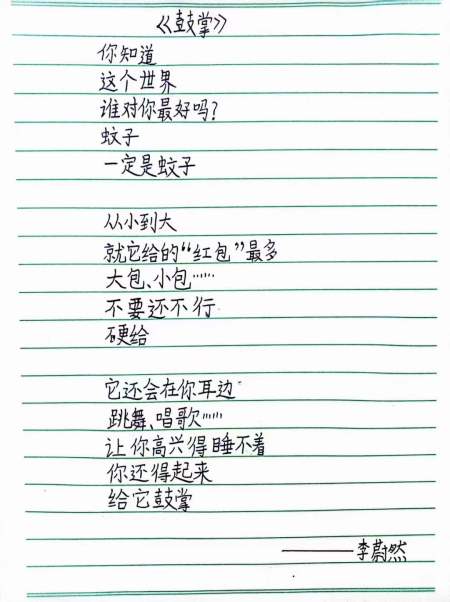 《鼓掌》
你知道
这个世界
谁对你最好吗?
蚊子
一定是蚊子
从小到大
就它给的“红包”最多
大包、小包……
不要还不行
硬给
它还会在你耳边
跳舞、唱歌……
让你高兴得睡不着
你还得起来
给它鼓掌
——李蔚然